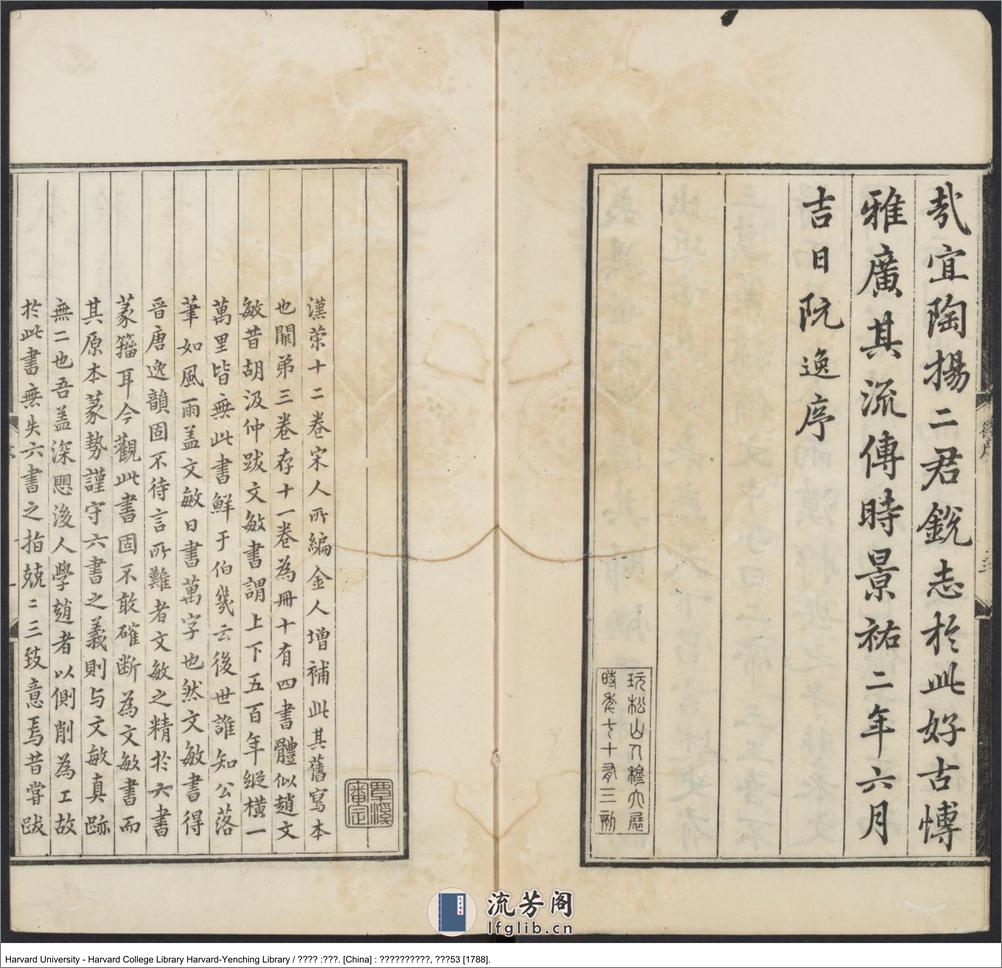 哉宜陶揚二君銳志於此好古博
雅廣其流傳時景祐二年六月
吉日阮逸序
玩松山人穆大展
時年七十有三刻
覃溪
審定
漢荣十二卷宋人所編金人增補此其舊寫本
也闕弟三卷存十一卷為冊十有四書體似趙文
敏昔胡汲仲跋文敏書謂上下五百年縱橫一
萬里皆無此書鮮于伯幾云後世誰知公落
筆如風雨盖文敏日書萬字也然文敏書得
晉唐逸韻固不待言所難者文敏之精於六書
篆籀耳今觀此書固不敢確断為文敏書而
其原本篆勢謹守六書之義則与文敏真跡
無二也吾盖深愳後人學趙者以側削為工故
於此書無失六書之指兢二三致意焉昔嘗跋
流芳阁
lfglib.cn
Harvard University - Harvard College Library Harvard-Yenching Library / ???? :???. [China] : ??????????, ???53 [1788].